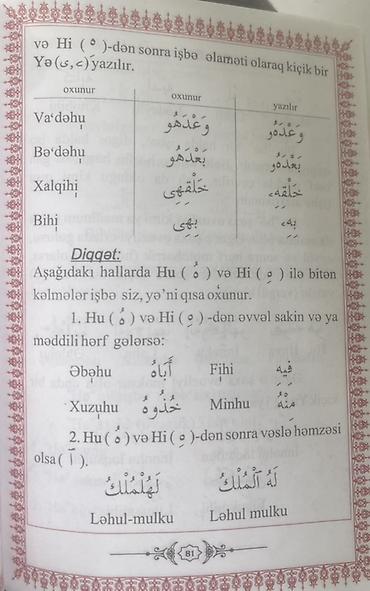 və Hi ( ـهِ )-dən sonra işbə əlaməti olaraq kiçik bir
Yə (ى, ے) yazılır.
oxunur oxunur yazılır
Va‘dəhụ وَعْدَهُو وَعْدَهُۥ
Bə‘dəhụ بَعْدَهُو بَعْدَهُۥ
Xalqihị خَلْقِهِى خَلْقِهِۦ
Bihị بِهِى بِهِۦ
Diqqət:
Aşağıdakı hallarda Hu ( هُ ) və Hi ( هِ ) ilə bitən
kəlmələr işbə siz, yə’ni qısa oxunur.
1. Hu ( هُ ) və Hi ( هِ ) -dən əvvəl sakin və ya
məddili hərf gələrsə:
Əbəhu أَبَاهُ Fịhi فِيهِ
Xuzụhu خُذُوهُ Minhu مِنْهُ
2. Hu ( هُ ) və Hi ( هِ )-dən sonra vəslə həmzəsi
olsa ( ٱ ).
لَهُلْمُلْكُ لَهُ ٱلْمُلْكُ
Ləhul-mulku Ləhul mulku
81